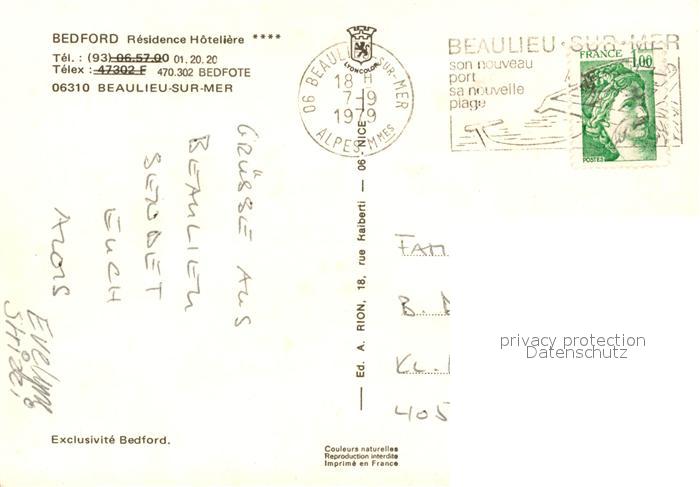 BEDFORD Résidence Hôtelière ****
Tél. : (93) 06.57.00 01.20.20
Télex : 47302 F 470.302 BEDFOTE
06310 BEAULIEU-SUR-MER
LYONCOLOR
06 BEAULIEU-SUR-MER
18 H
7-9
1979
ALPES-MMES
BEAULIEU-SUR-MER
son nouveau
port
sa nouvelle
plage
FRANCE
1,00
POSTES
GRÜSSE AUS
BEAULIEU
SENDET
EUCH
ALOIS
Evelyne
— Ed. A. RION, 18, rue Raiberti — 06 - NICE —
FAM
B.
KL.
405
privacy protection
Datenschutz
Exclusivité Bedford.
Couleurs naturelles
Reproduction interdite
Imprimé en France